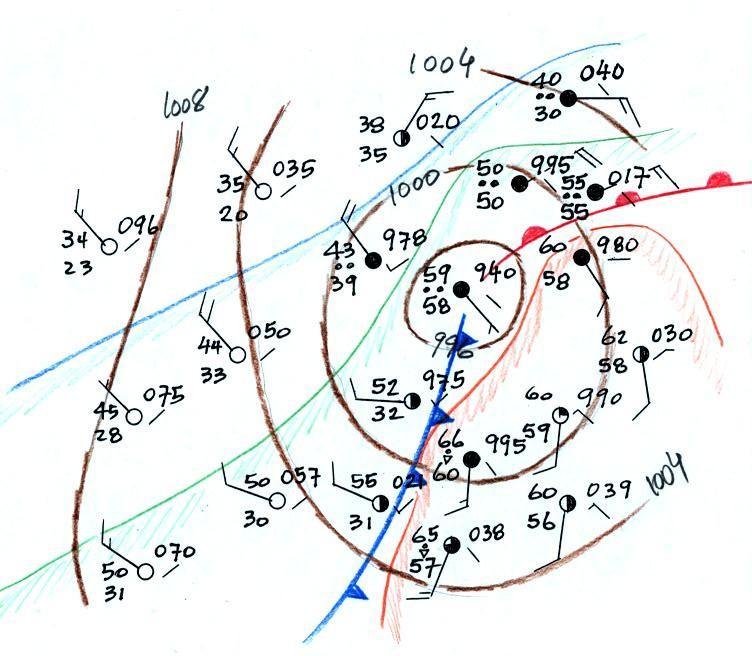 1004
40 040
30
1008
38 020
35
35 035
20
50 995
50
55 017
55
1000
34 096
23
43 978
39
60 980
58
59 940
58
996
44 050
33
62 030
58
52 975
32
45 075
28
60 990
59
66 995
60
50 057
30
55 021
31
60 039
56
1004
65 038
57
50 070
31